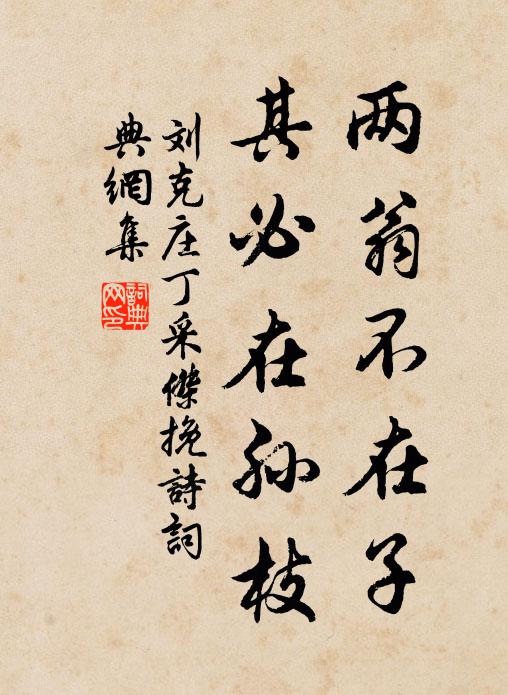 两翁不在子
其必在孙枝
刘克庄丁采傑挽詩詞
典網集
詞典网印